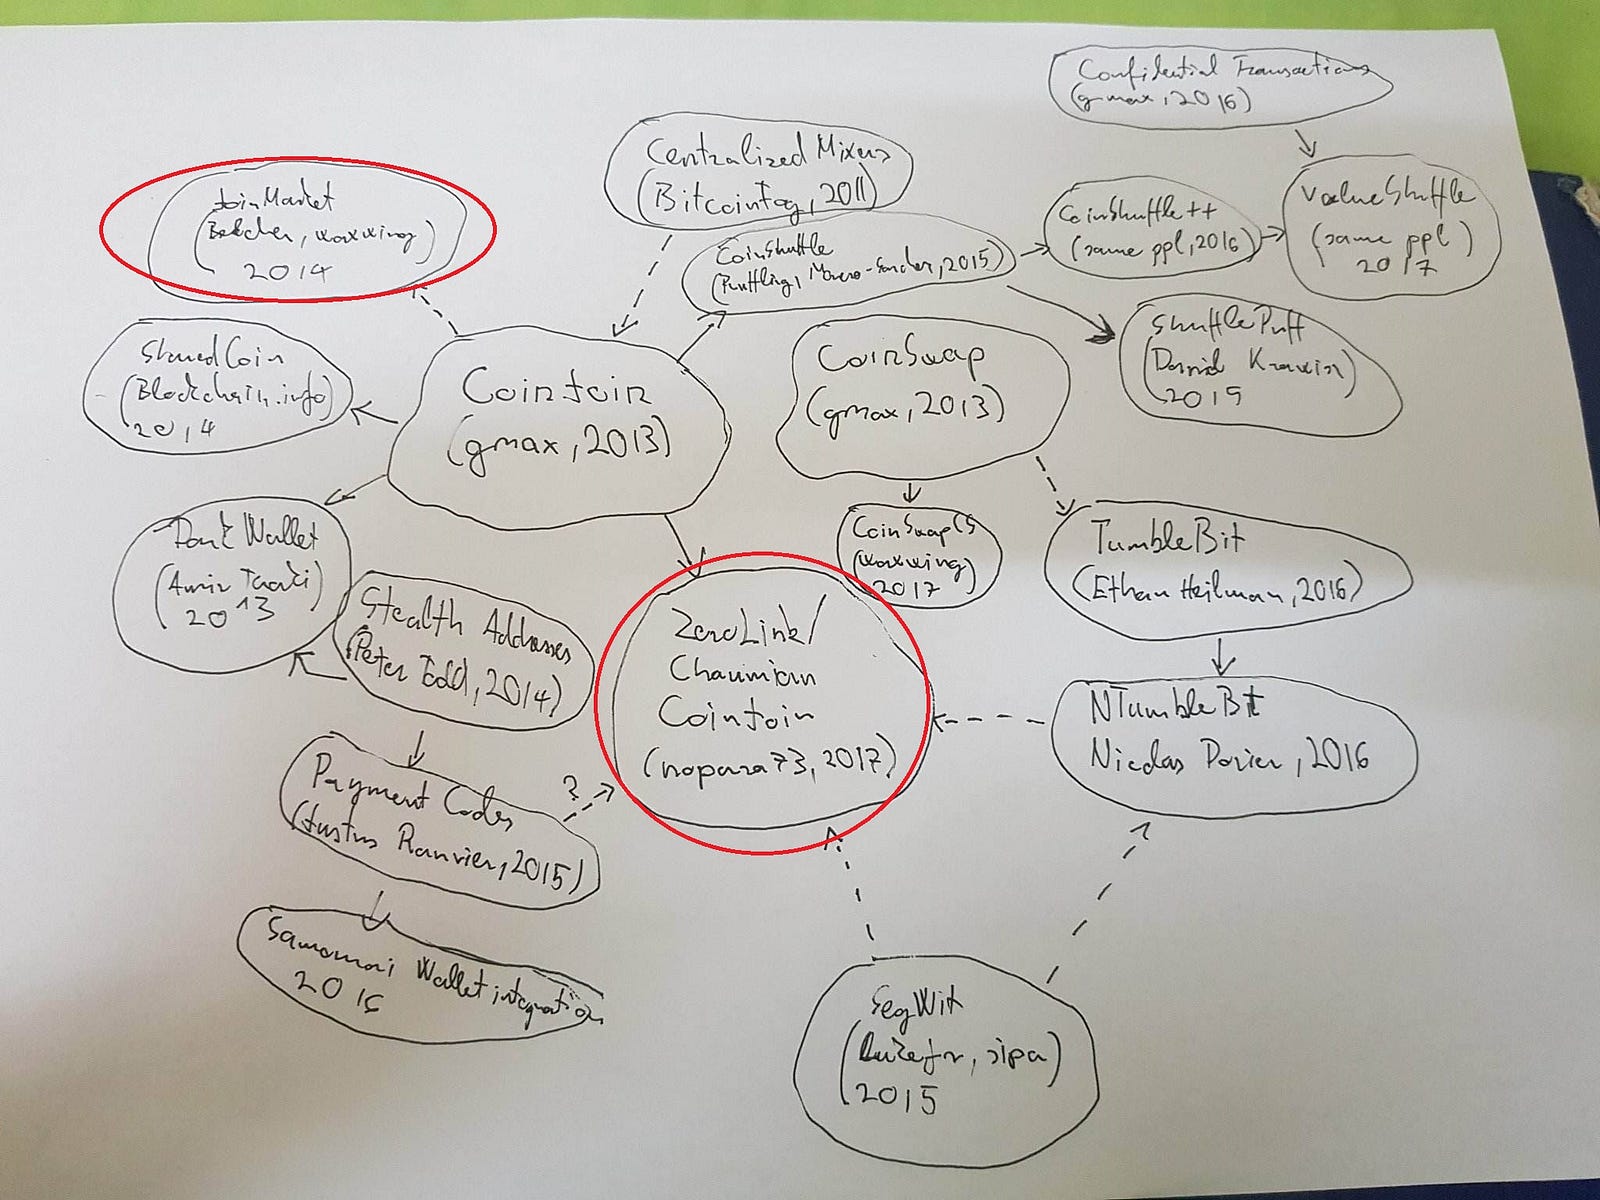 Confidential Transactions
(gmax, 2016)
Centralized Mixers
(Bitcoin Fog, 2011)
JoinMarket
(Belcher, waxwing)
2014
CoinShuffle
(Ruffling, Moreno-Sanchez, 2015)
CoinShuffle++
(same ppl, 2016)
ValueShuffle
(same ppl)
2017
SharedCoin
(Blockchain.info)
2014
CoinJoin
(gmax, 2013)
CoinSwap
(gmax, 2013)
ShufflePuff
(Daniel
Dark Wallet
(Amir Taaki)
2013
Stealth Addresses
(Peter Todd, 2014)
CoinSwapCS
(waxwing)
2017
TumbleBit
(Ethan Heilman, 2016)
ZeroLink/
Chaumian
CoinJoin
(nopara73, 2017)
NTumbleBit
Nicolas Dorier, 2016
Payment Codes
(Justus Ranvier, 2015)
?
Samourai Wallet integration
SegWit
sipa)
2015